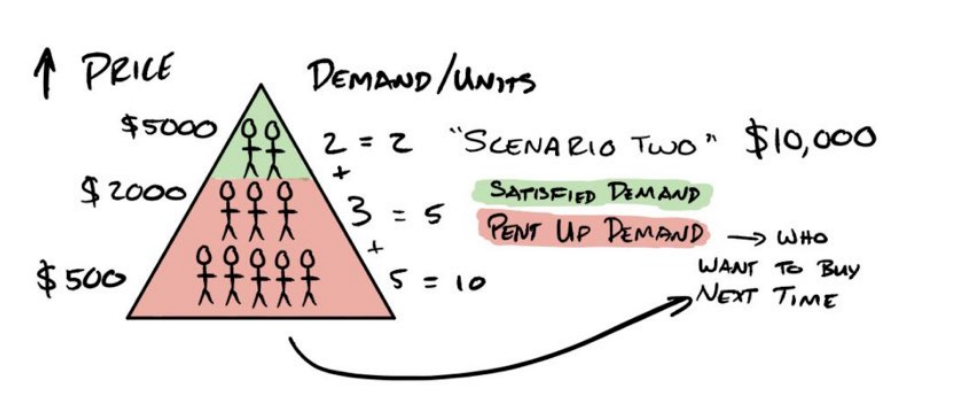 ↑ PRICE
DEMAND/UNITS
$5000
2 = 2
"SCENARIO TWO" $10,000
+
$2000
SATISFIED DEMAND
3 = 5
PENT UP DEMAND → WHO
+
WANT TO BUY
$500
5 = 10
NEXT TIME